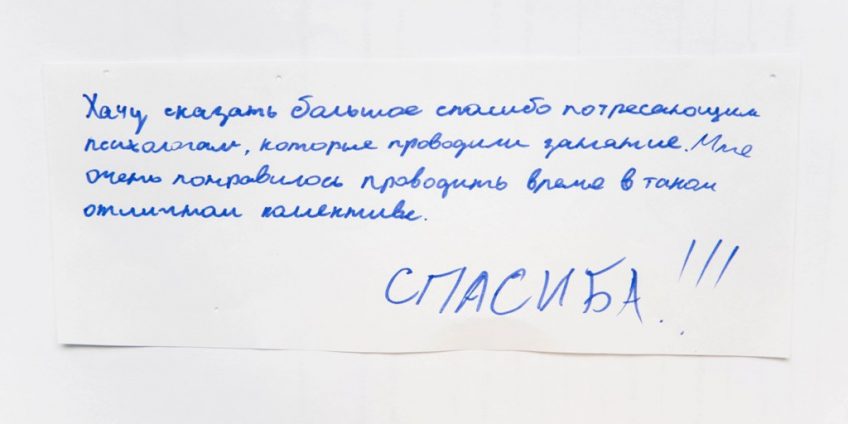 Хачу сказать бальшое спасибо потресающим
психологам, которые проводили занатие. Мне
очень понравилось проводить время в таком
отличном коллективе.
СПАСИБА!!!